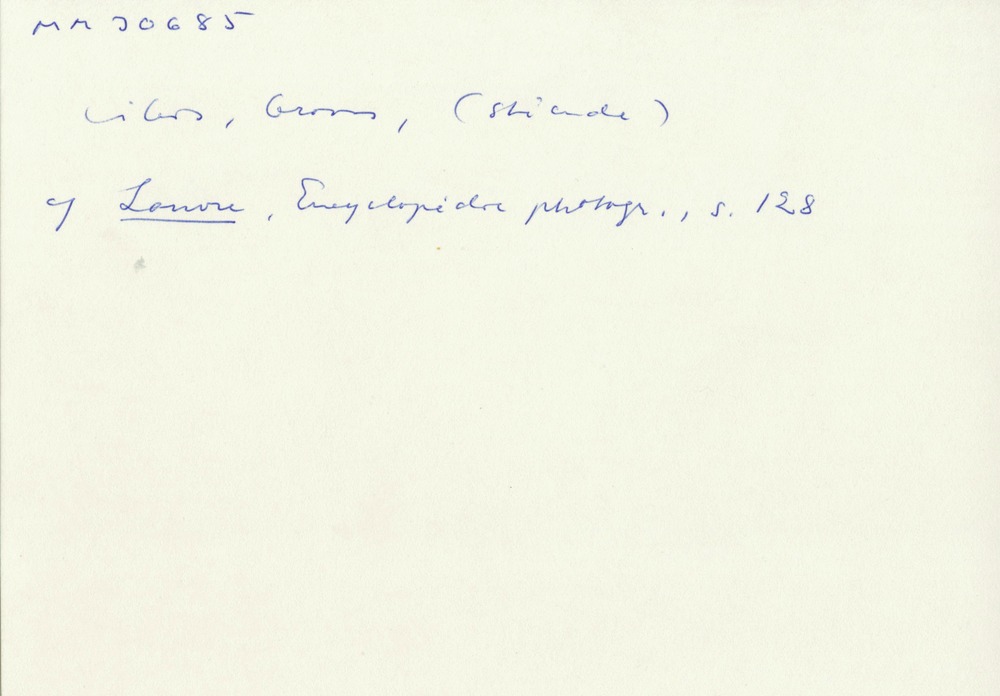 MM 30685
, brons, (stående)
cf Louvre, Encyclopédie photogr., s. 128